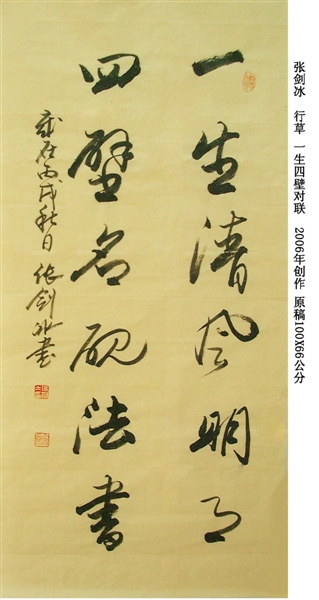 张剑冰 行草 一生四壁对联 2006年创作 原稿100X66公分
一生清风明月
四壁名砚法書
歲在丙戌秋日 张剑冰書